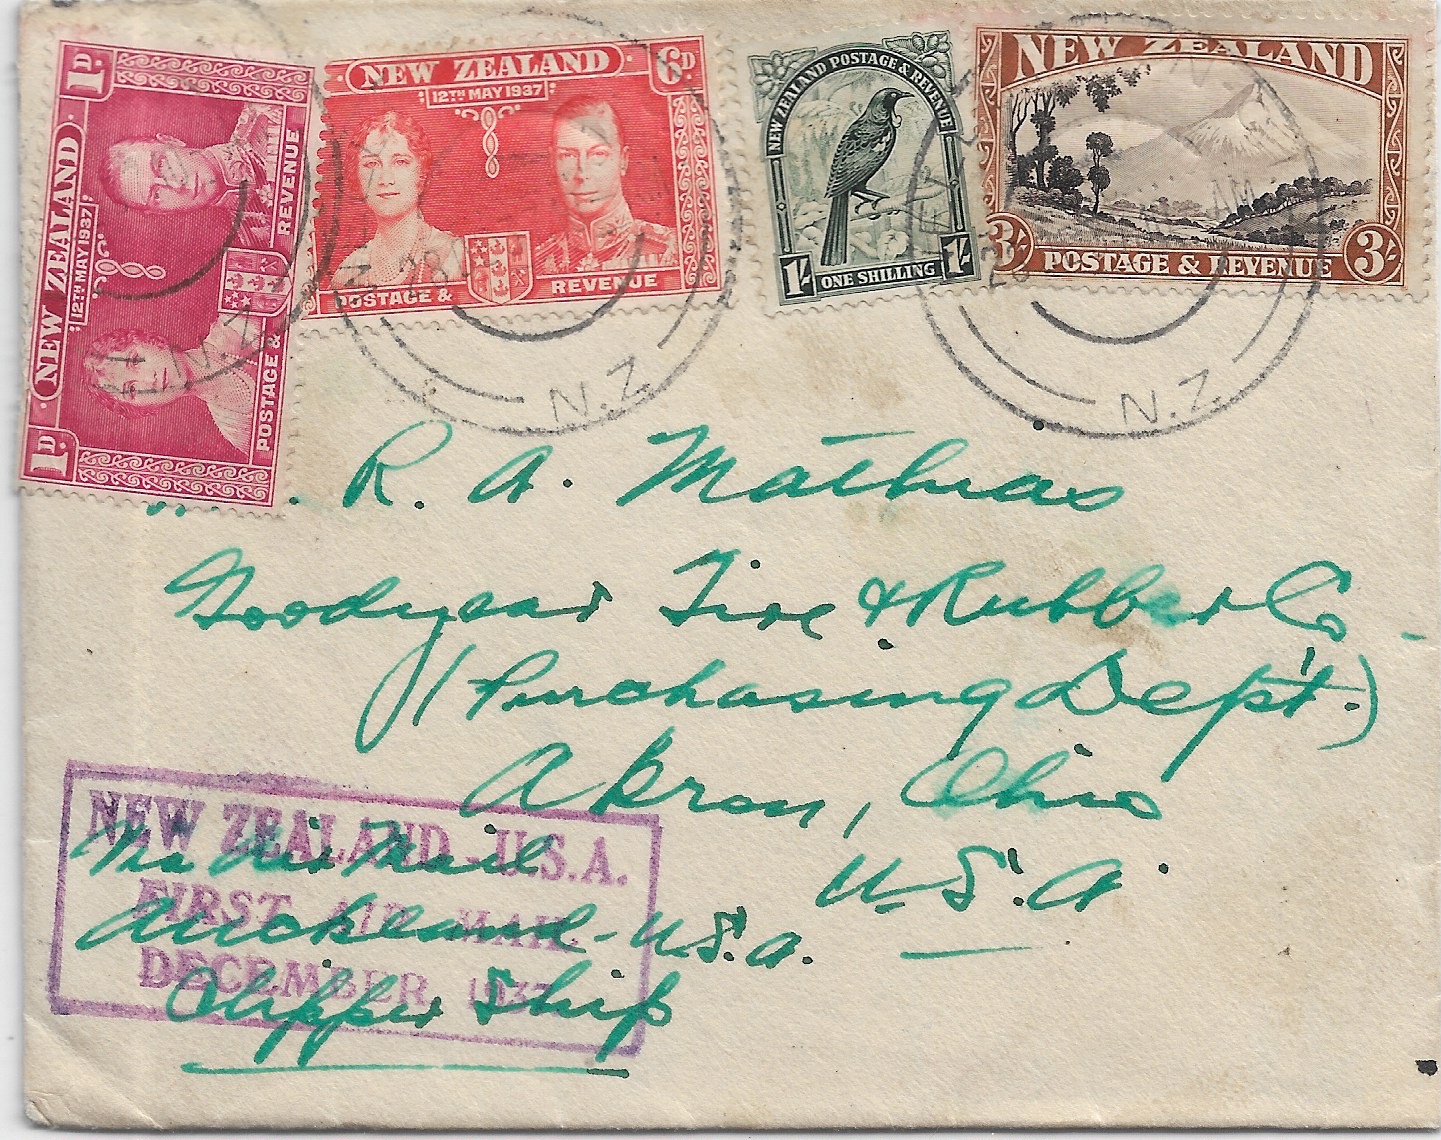 1D.
NEW ZEALAND
12TH MAY 1937
POSTAGE & REVENUE
1D.
NEW ZEALAND
6D.
12TH MAY 1937
POSTAGE & REVENUE
NEW ZEALAND POSTAGE & REVENUE
1/- ONE SHILLING 1/-
NEW ZEALAND
3/- POSTAGE & REVENUE 3/-
N.Z.
28
N.Z.
N.Z.
R. A. Mathias
Goodyear Tire & Rubber Co.
(Purchasing Dep't.)
Akron, Ohio
U.S.A.
NEW ZEALAND - U.S.A.
FIRST AIR MAIL
DECEMBER 1937
Via Air Mail
Auckland - U.S.A.
Clipper Ship